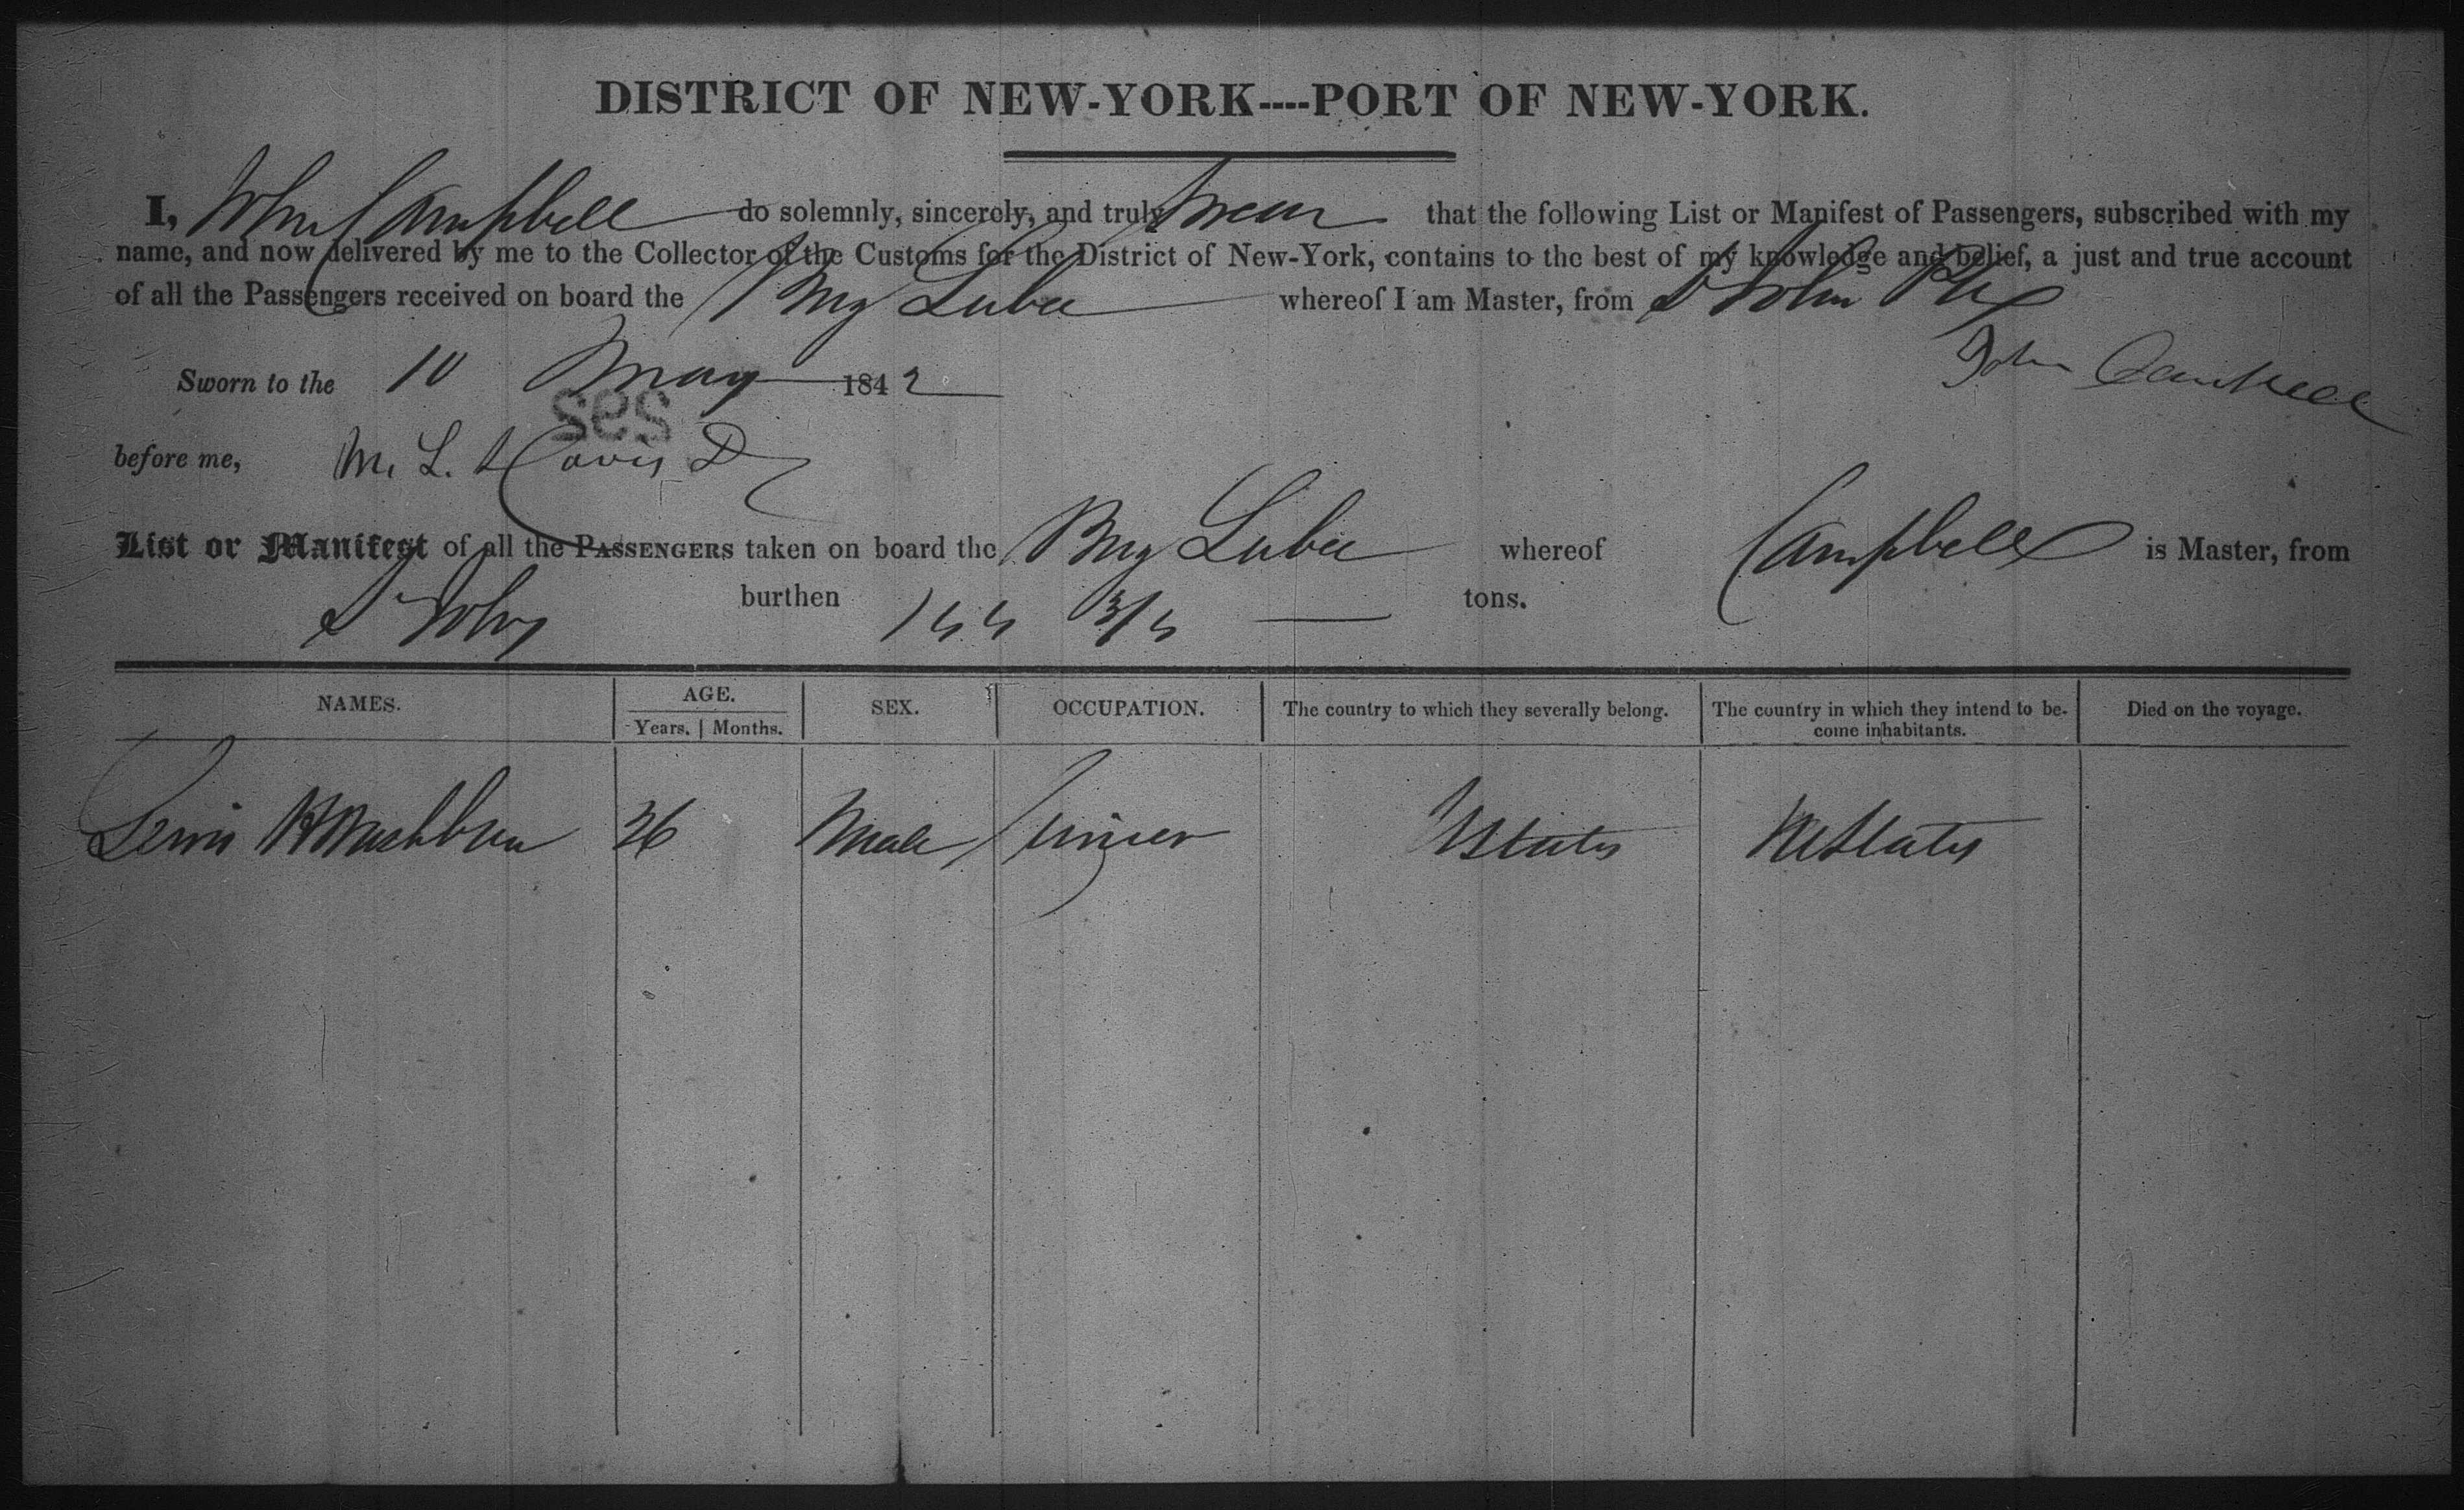 DISTRICT OF NEW-YORK----PORT OF NEW-YORK.
I, John Campbell do solemnly, sincerely, and truly swear that the following List or Manifest of Passengers, subscribed with my
name, and now delivered by me to the Collector of the Customs for the District of New-York, contains to the best of my knowledge and belief, a just and true account
of all the Passengers received on board the Brig Lubec whereof I am Master, from St John
John Campbell
Sworn to the 10 May 1842
ses
before me, M. L. Davis D
List or Manifest of all the PASSENGERS taken on board the Brig Lubec whereof Campbell is Master, from
St Johns burthen tons.
NAMES. AGE. SEX. OCCUPATION. The country to which they severally belong. The country in which they intend to be- Died on the voyage.
Years. Months. come inhabitants.
Lewis 36 Male UStates UStates